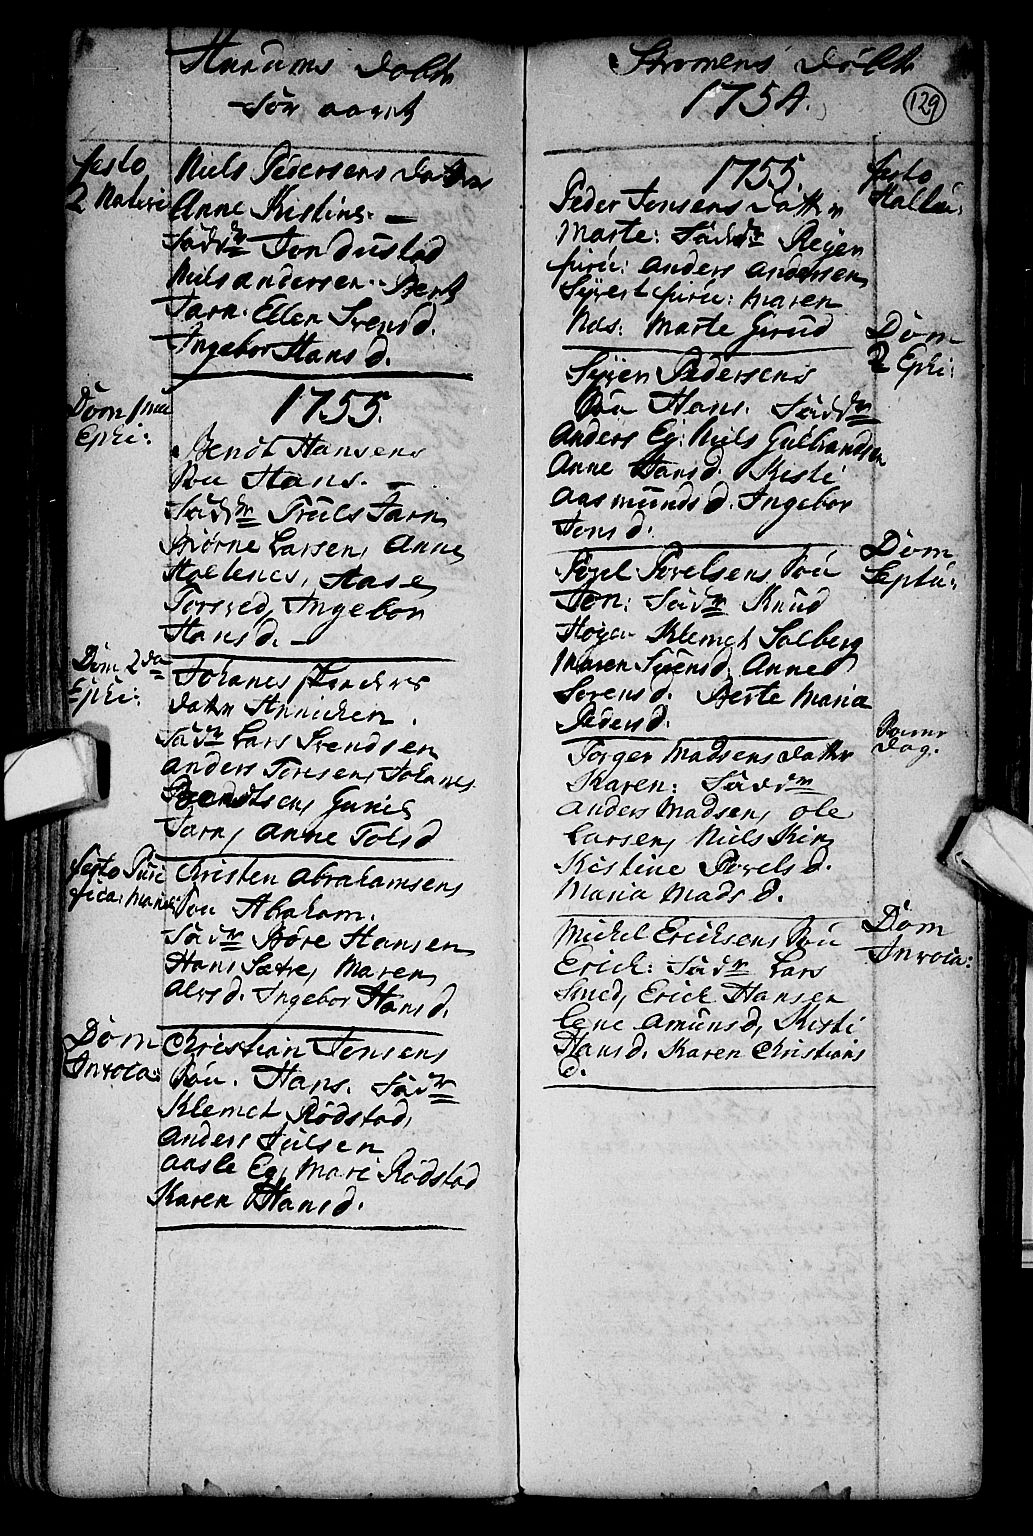 Hurums Døbte
for aaret
festo
2 Nativi
Niels Pedersens datter
Anne Kistine. —
Faddr Jon dustad
Niels andersen. Berte
Tarn. Ellen Svensd.
Ingebor Hans d.
1755.
Dom 1 mu
Ephi:
Bendt Hansens
Søn Hans. —
Faddr Truls Tarn,
Biørne Larsen, Anne
Holtenes, Aase
Torsved, Ingebor
Hans d. —
Dom 2da
Ephi:
Johanes
datr Annichen.
Fadr Lars Svendsen
Anders Tonsen, Johanes
Bendtsen, Gunil
Tarn, Anne Tolsd
festo Puri
fica: Mariæ
Christen Abrahamsens
Søn Abraham.
Fadr Børe Hansen
Hans Sætre, Maren
Alvsd. Ingebor Hansd.
Dom
Invoca:
Christian Jensens
Søn. Hans. Fadr
Klemet Rødstad,
Anders Julsen
Aasle Eg, Mari Rødstad
Karen Hansd.
Strømens Døbte
1754.
129
1755.
festo
Peder Jensens dattr
Marte: Faddr Reyer
furu: Anders Andersen,
Syvert furu: Maren
Næs: Marte Gerud
Dom
2 Ephi:
Syver Pedersens
Søn Hans. Faddr
Anders Eg: Niels Gulbrandsen
Anne Hansd. Kisti
Aasmundsd. Ingebor
Jonsd.
Dom
Septu:
Povel Povelsens Søn
Jon: Fadr Knud
Høyen Klemet Solberg
Maren Syversd. Anne
Sørensd. Berte Maria
Pedersd.
dag.
Torger Madsens datr
Karen: Faddr
Anders Madsen, Ole
Larsen, Niels
Kistine Povelsd.
Maria Madsd.
Dom
Invoca:
Michel Ericksens Søn
Erick: Fadr Lars
Smed, Erick Hansen
Lene Amunsd, Kisti
Hansd. Karen Christians
d.